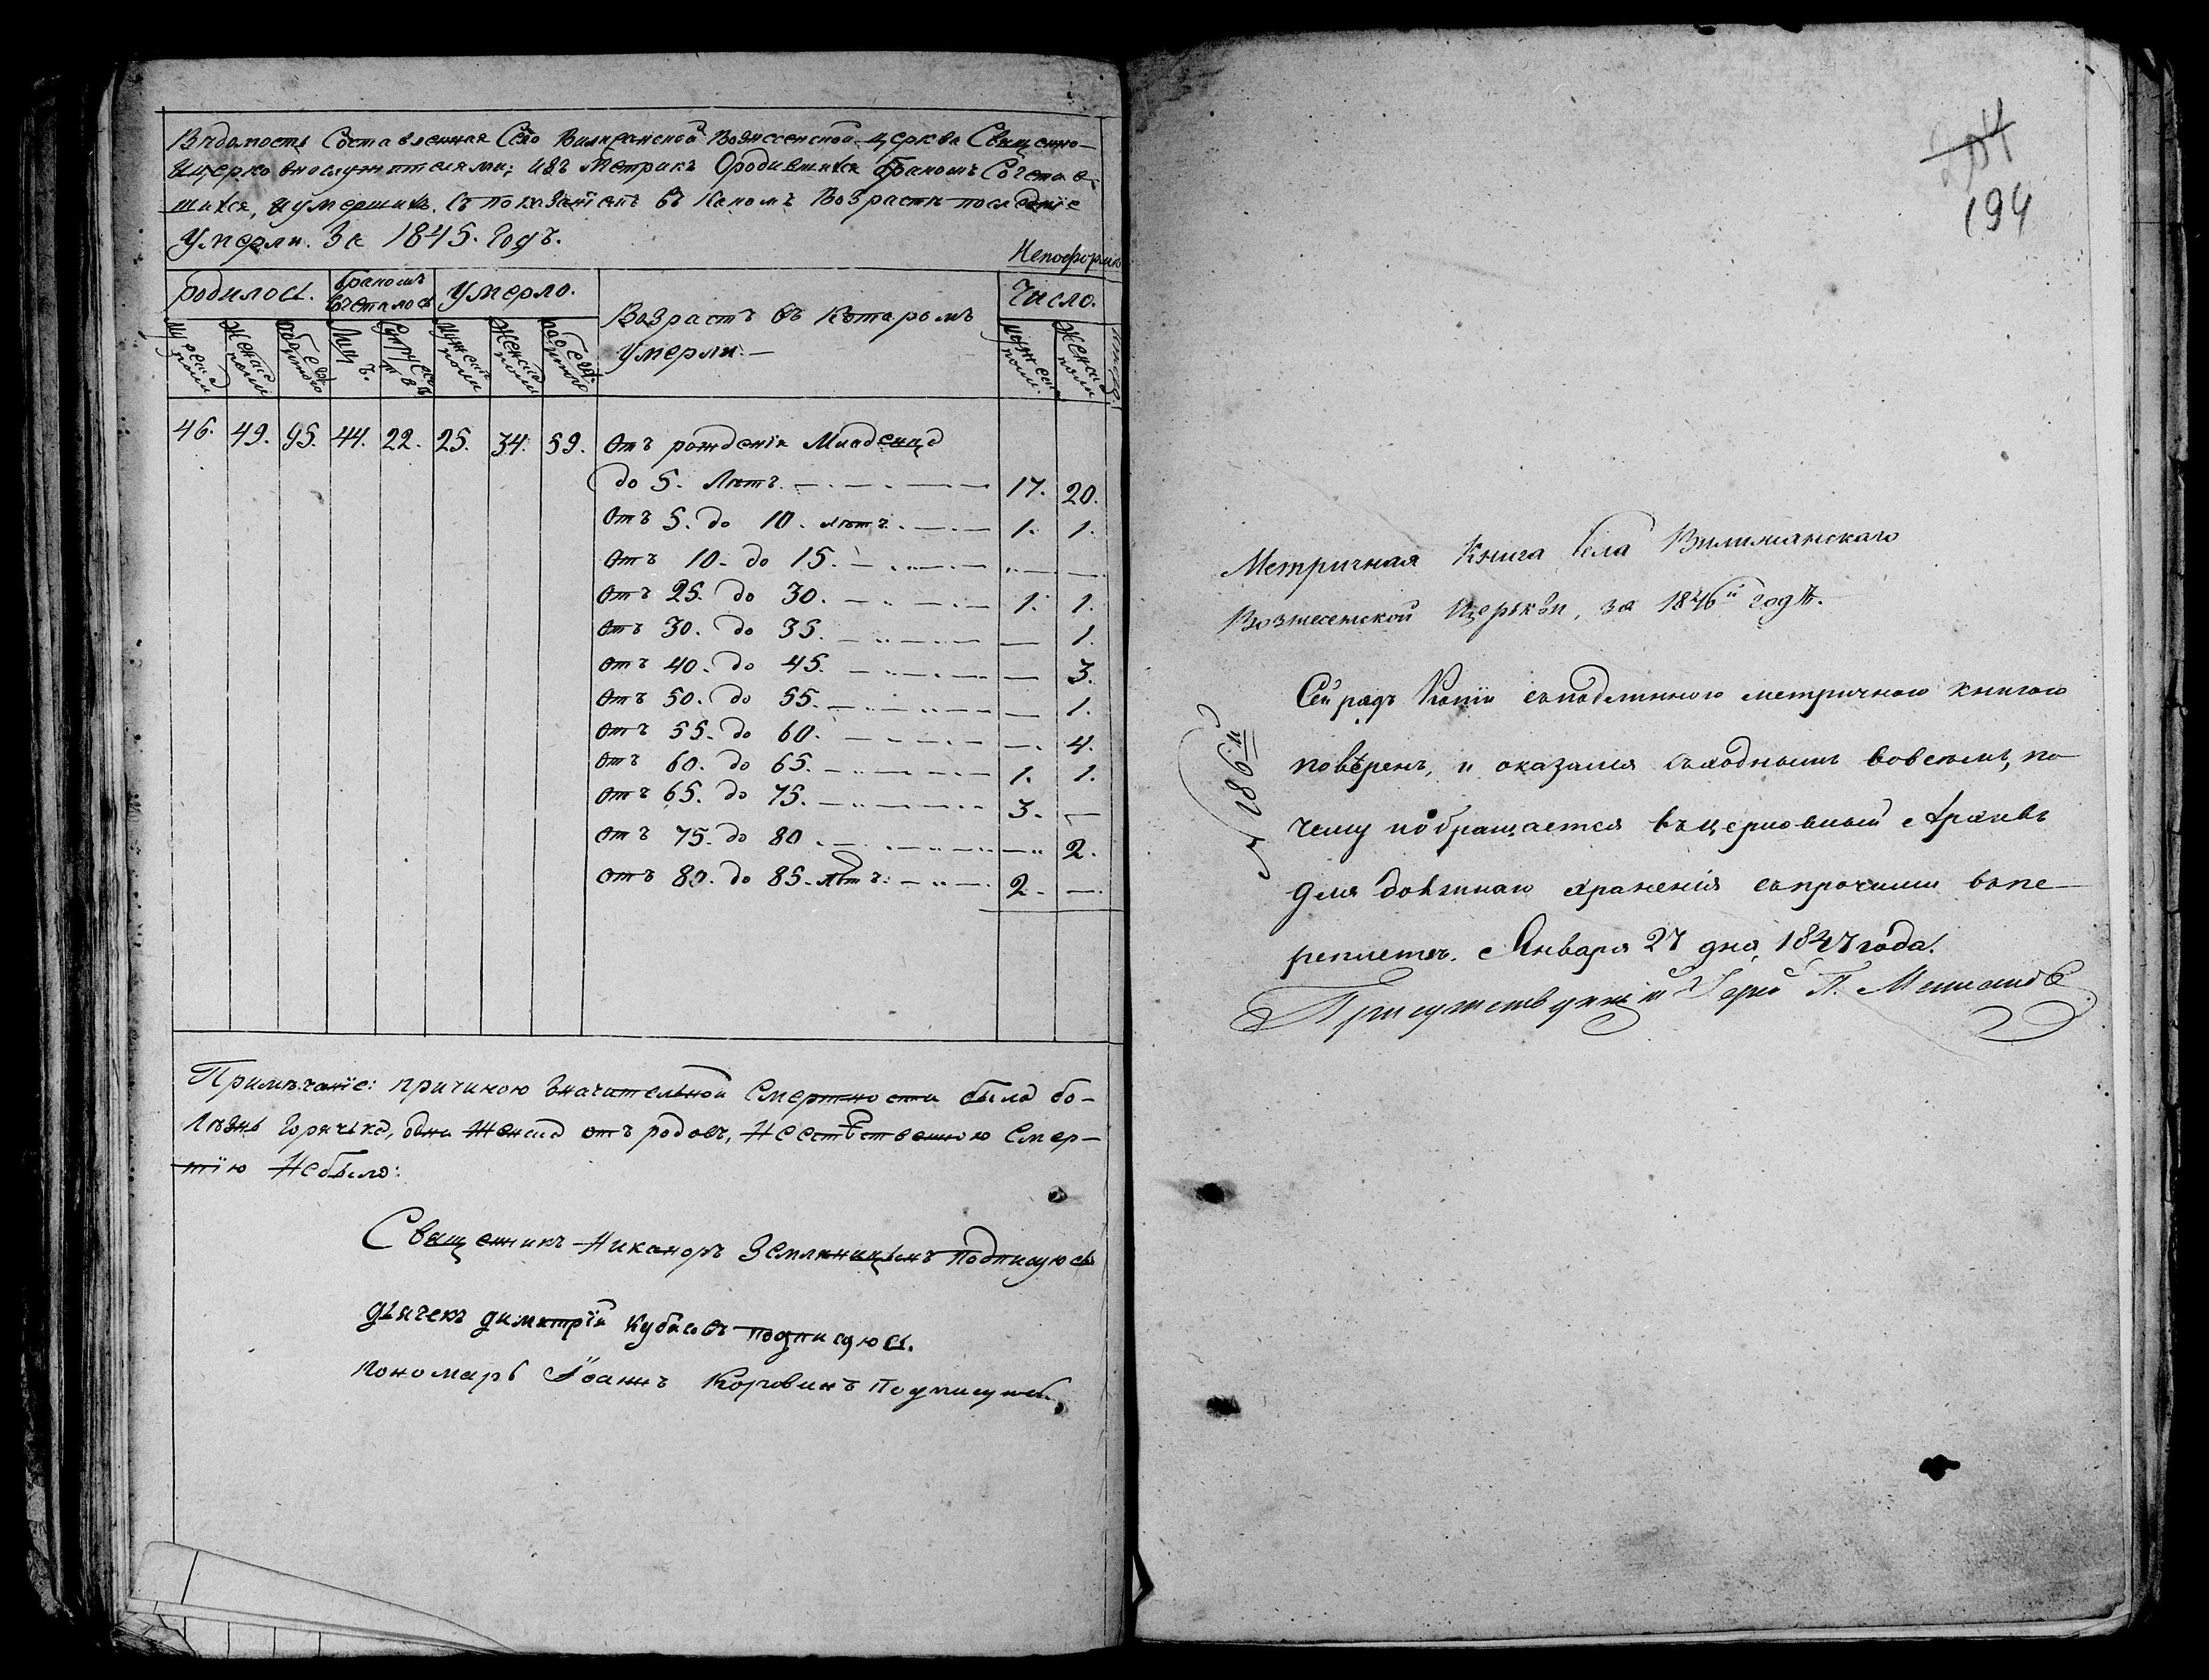 Вѣдомость Составленная Села Вилижанской Вознесенской церкви Священно-
Ицерковнослужителями; изъ Метрикъ Ородившихся бракомъ Сочетав-
шихся, иумершихъ. Съ показанїемъ въ Какомъ Возрастѣ последнїе
Умерли. За 1845. Годъ.
родилось.
бракомъ
Умерло.
Возрастъ въ Которомъ
умерли.—
Число.
46. 49. 95. 44. 22. 25. 34. 59. Отъ рожденія Младенца
до 5. Лѣтъ. 17. 20.
Отъ 5. до 10. лѣтъ. 1. 1.
Отъ 10. до 15. — —
Отъ 25. до 30. 1. 1.
Отъ 30. до 35. — 1.
Отъ 40. до 45. — 3.
Отъ 50. до 55. — 1.
Отъ 55. до 60. — 4.
Отъ 60. до 65. 1. 1.
Отъ 65. до 75. 3. —
Отъ 75. до 80. — 2.
Отъ 80. до 85. лѣтъ. 2. —
Примѣчанїе: причиною Значительной Смертности была бо-
лѣзнь Горячька, одна Женска отъ родовъ, Неестественною Смер-
тїю Небыло:
Священникъ Никаноръ Земляницынъ подписуюсь
дьячекъ димитрїй Кубасовъ подписуюсь.
пономарь Іоаннъ Корвинъ
194
Метричная Книга Села Вилижанскаго
Вознесенской Церькви, за 1846й годъ.
Сей рядъ Копіи съподлинною метричною книгою
повѣренъ, и оказался съходнымъ вовсемъ, по
чему иобращается въцерковный Архивъ
для должнаго храненія съпрочими вопе-
реплетъ. Января 27 дня, 1847 года.
Присутствующій Іерей П.
1846й